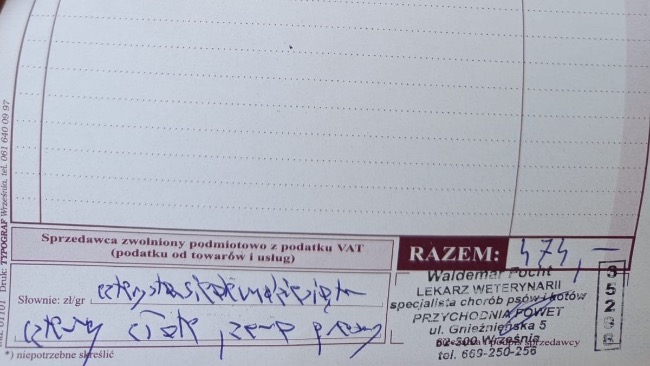 Druk: TYPOGRAF Września, tel. 061 640 09 97
Sprzedawca zwolniony podmiotowo z podatku VAT
(podatku od towarów i usług)
RAZEM: 474,—
Słownie: zł/gr czterystasiedemdziesiąt
cztery
*) niepotrzebne skreślić
Waldemar Pocht
LEKARZ WETERYNARII
specjalista chorób psów i kotów
PRZYCHODNIA POWET
ul. Gnieźnieńska 5
62-300 Września
tel. 669-250-256
podpis sprzedawcy